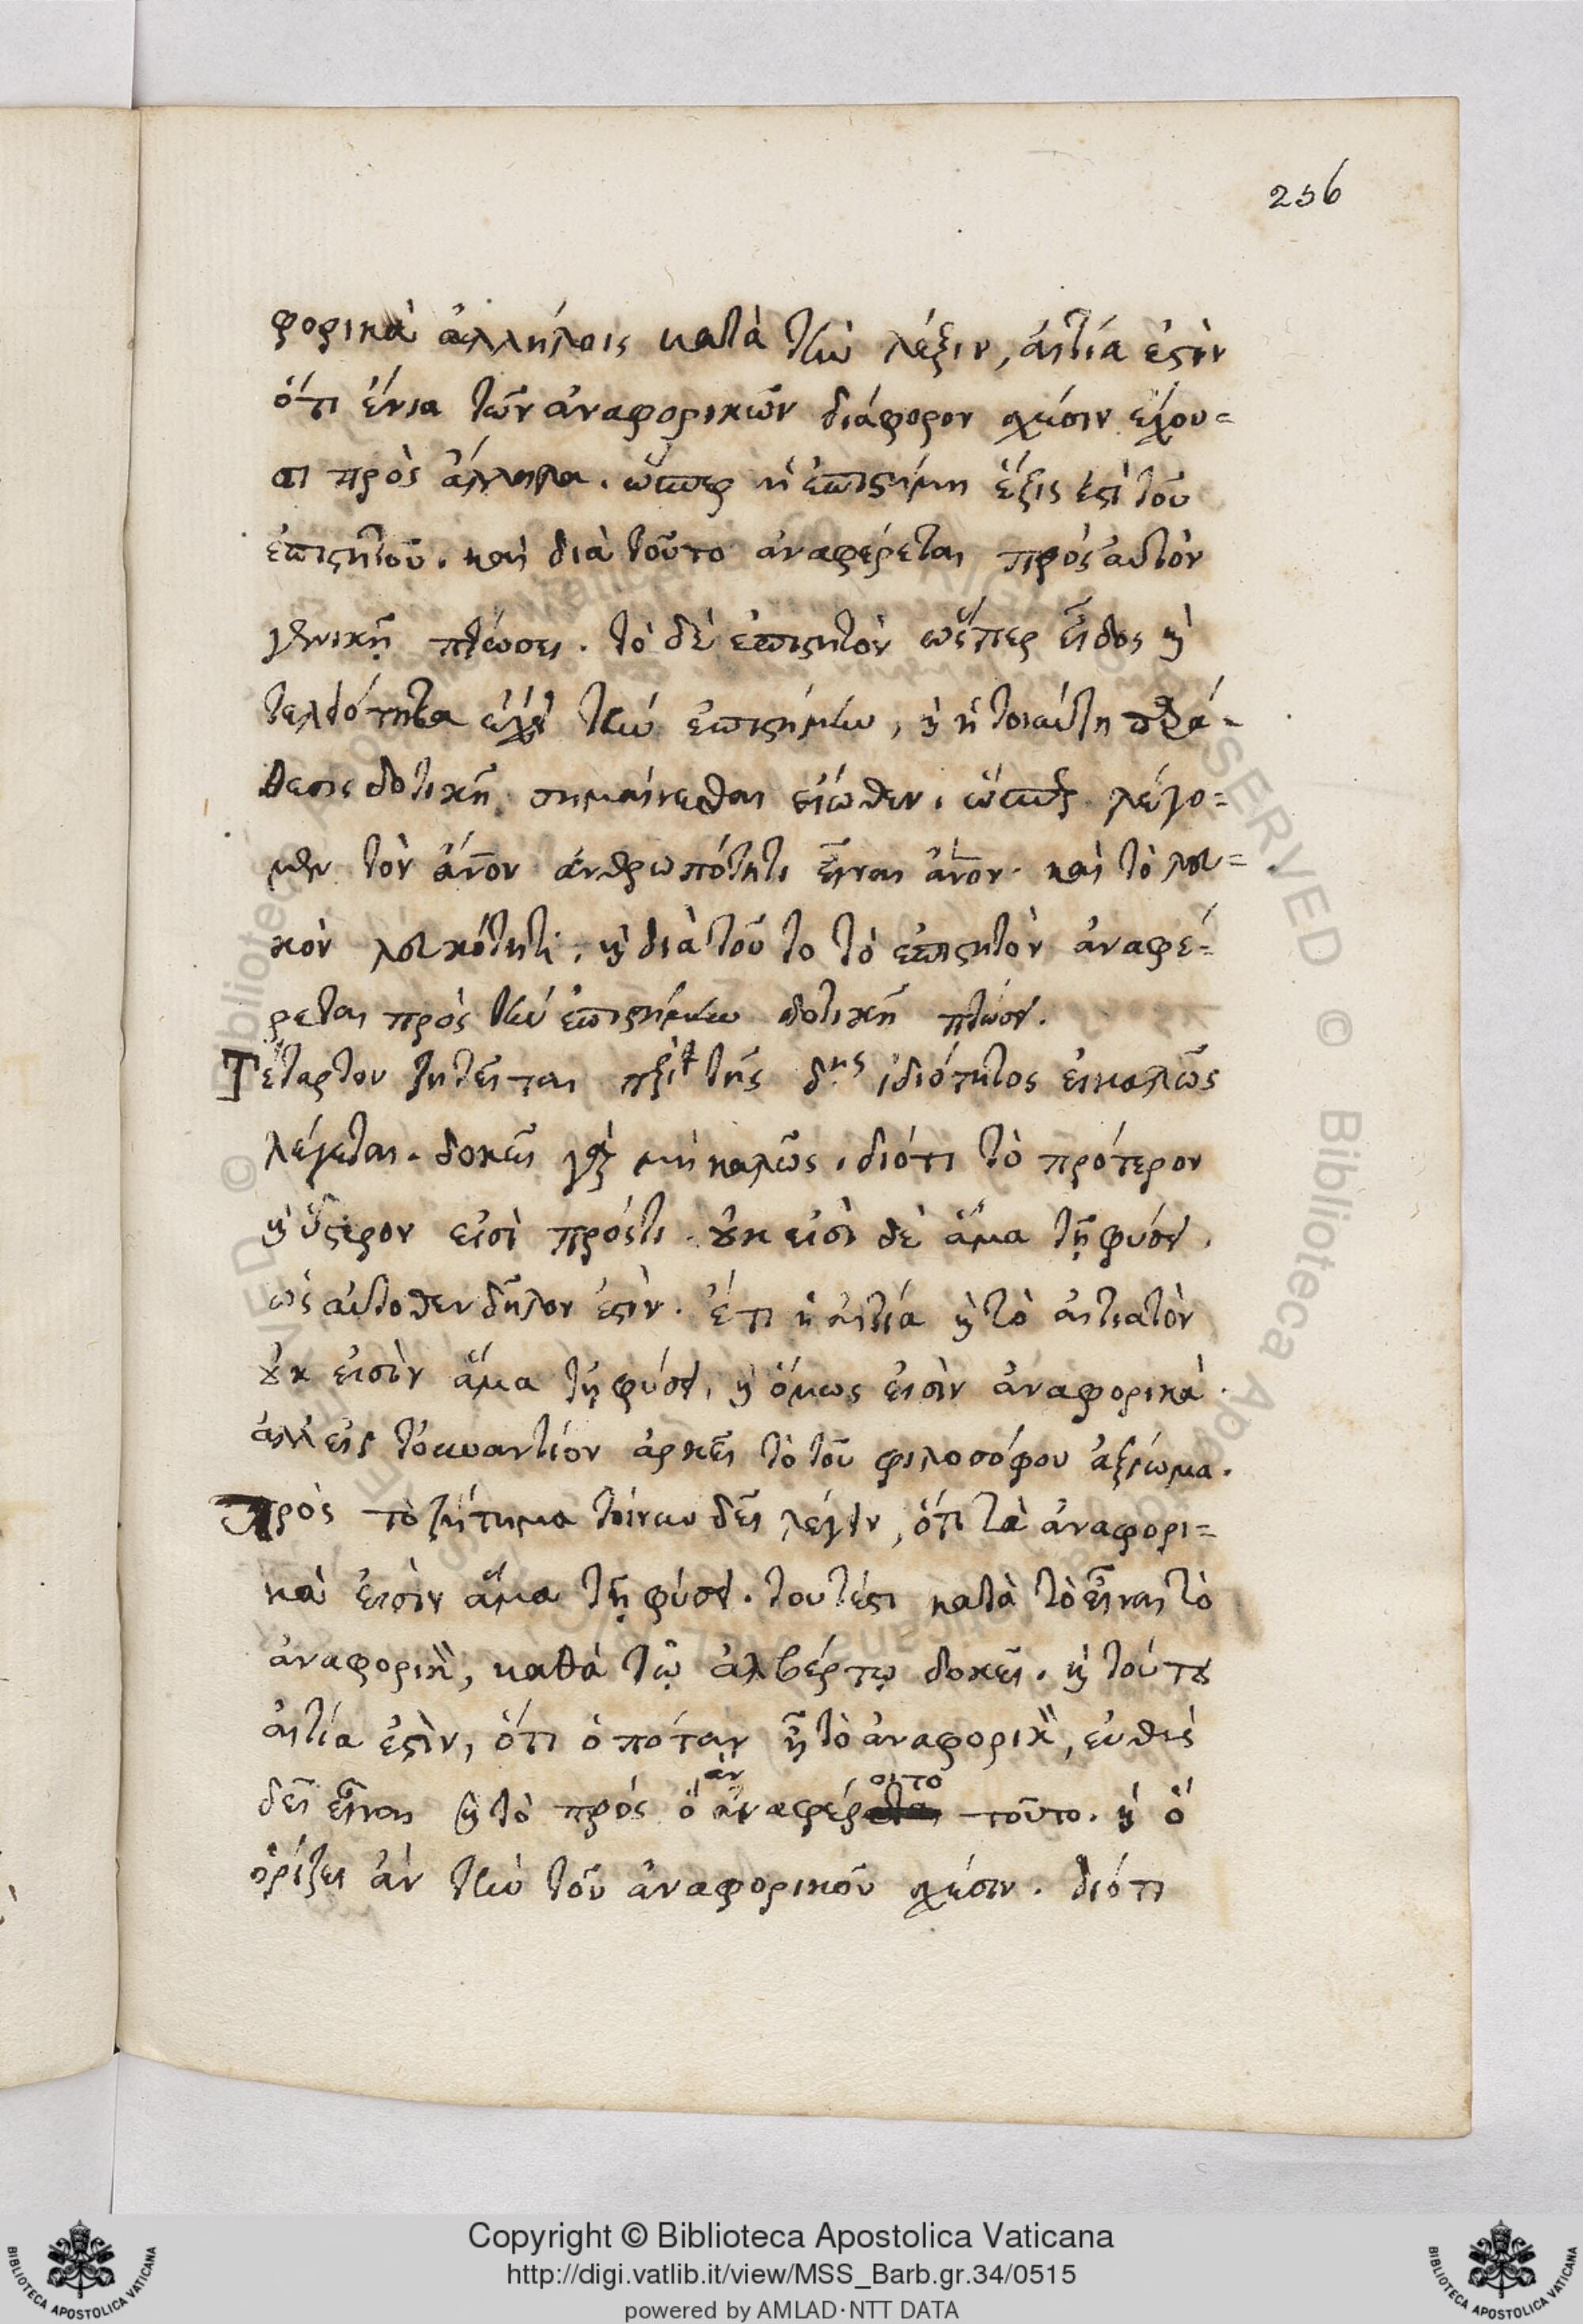 256
φορικὰ ἀλλήλοις κατὰ τὴν λέξιν, αἰτία ἐστὶν
ὅτι ἔνια τῶν ἀναφορικῶν διάφορον σχέσιν ἔχου=
σι πρὸς ἄλληλα. ὥσπερ ἡ ἐπιστήμη ἕξις ἐστὶ τοῦ
ἐπιστητοῦ. καὶ διὰ τοῦτο ἀναφέρεται πρὸς αὐτὸν
γενικῇ πτώσει. τὸ δὲ ἐπιστητὸν ὥσπερ εἶδος ϗ
τελειότητα ἔχει τὴν ἐπιστήμην, ϗ ἡ τοιαύτη
δοτικῇ σημαίνεσθαι εἴωθεν. ὥσπερ λέγο=
μεν τὸν ἄνον ἀνθρωπότητι εἶναι ἄνον. καὶ τὸ λευ=
κὸν λευκότητι. ϗ διὰ τοῦτο τὸ ἐπιστητὸν ἀναφέ=
ρεται πρὸς τὴν ἐπιστήμην δοτικῇ πτώσει.
Τέταρτον ζητεῖται περὶ τῆς δ.ης ἰδιότητος εἰ καλῶς
λέγεται. δοκεῖ γὰρ μὴ καλῶς. διότι τὸ πρότερον
ϗ ὕστερον εἰσὶ πρόστι. ȣκ εἰσὶ δὲ ἅμα τῇ φύσει.
ὡς αὐτοθεν δῆλον ἐστίν. ἔτι ἡ αἰτία ϗ τὸ αἰτιατὸν
ȣκ εἰσὶν ἅμα τῇ φύσει, ϗ ὅμως εἰσὶν ἀναφορικά.
ἀλλ εἰς τοὐναντίον ἀρκεῖ τὸ τοῦ φιλοσόφου ἀξίωμα.
Πρὸς τὸ ζήτημα τοίνυν δεῖ λέγειν, ὅτι τὰ ἀναφορι=
κὰ εἰσὶν ἅμα τῇ φύσει. τουτέστι κατὰ τὸ εἶναι τὸ
ἀναφορικὸν, καθὰ τῷ ἀλβέρτῳ δοκεῖ. ϗ τούτȣ
αἰτία ἐστὶν, ὅτι ὁπόταν ᾖ τὸ ἀναφορικὸν, εὐθὺς
δεῖ εἶναι ϗ τὸ πρὸς ὃ ἂν ἀναφέροιτο τοῦτο. ϗ ὃ
ὁρίζει ἂν τὴν τοῦ ἀναφορικοῦ σχέσιν. διότι
Copyright © Biblioteca Apostolica Vaticana
http://digi.vatlib.it/view/MSS_Barb.gr.34/0515
powered by AMLAD·NTT DATA
BIBLIOTECA APOSTOLICA VATICANA
BIBLIOTECA APOSTOLICA VATICANA